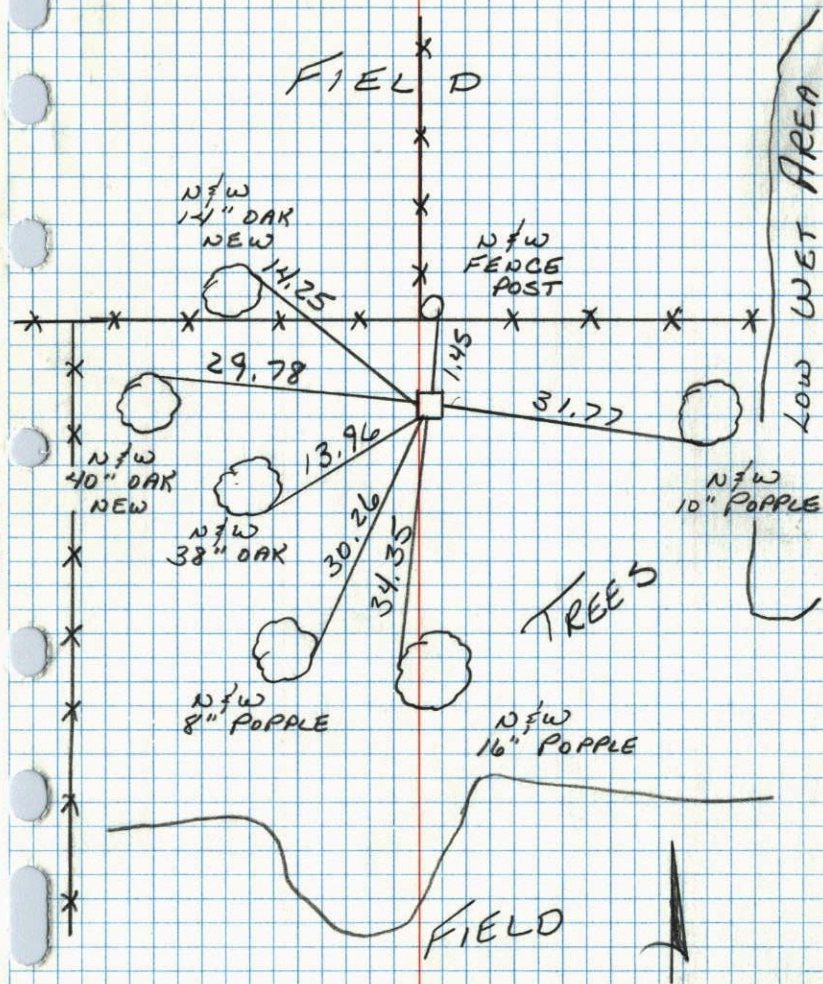 FIELD
LOW WET AREA
N & W
14" OAK
NEW
14.25
N & W
FENCE
POST
1.45
29.78
31.77
N & W
40" OAK
NEW
13.96
N & W
38" OAK
N & W
10" POPPLE
30.26
34.35
TREES
N & W
8" POPPLE
N & W
16" POPPLE
FIELD